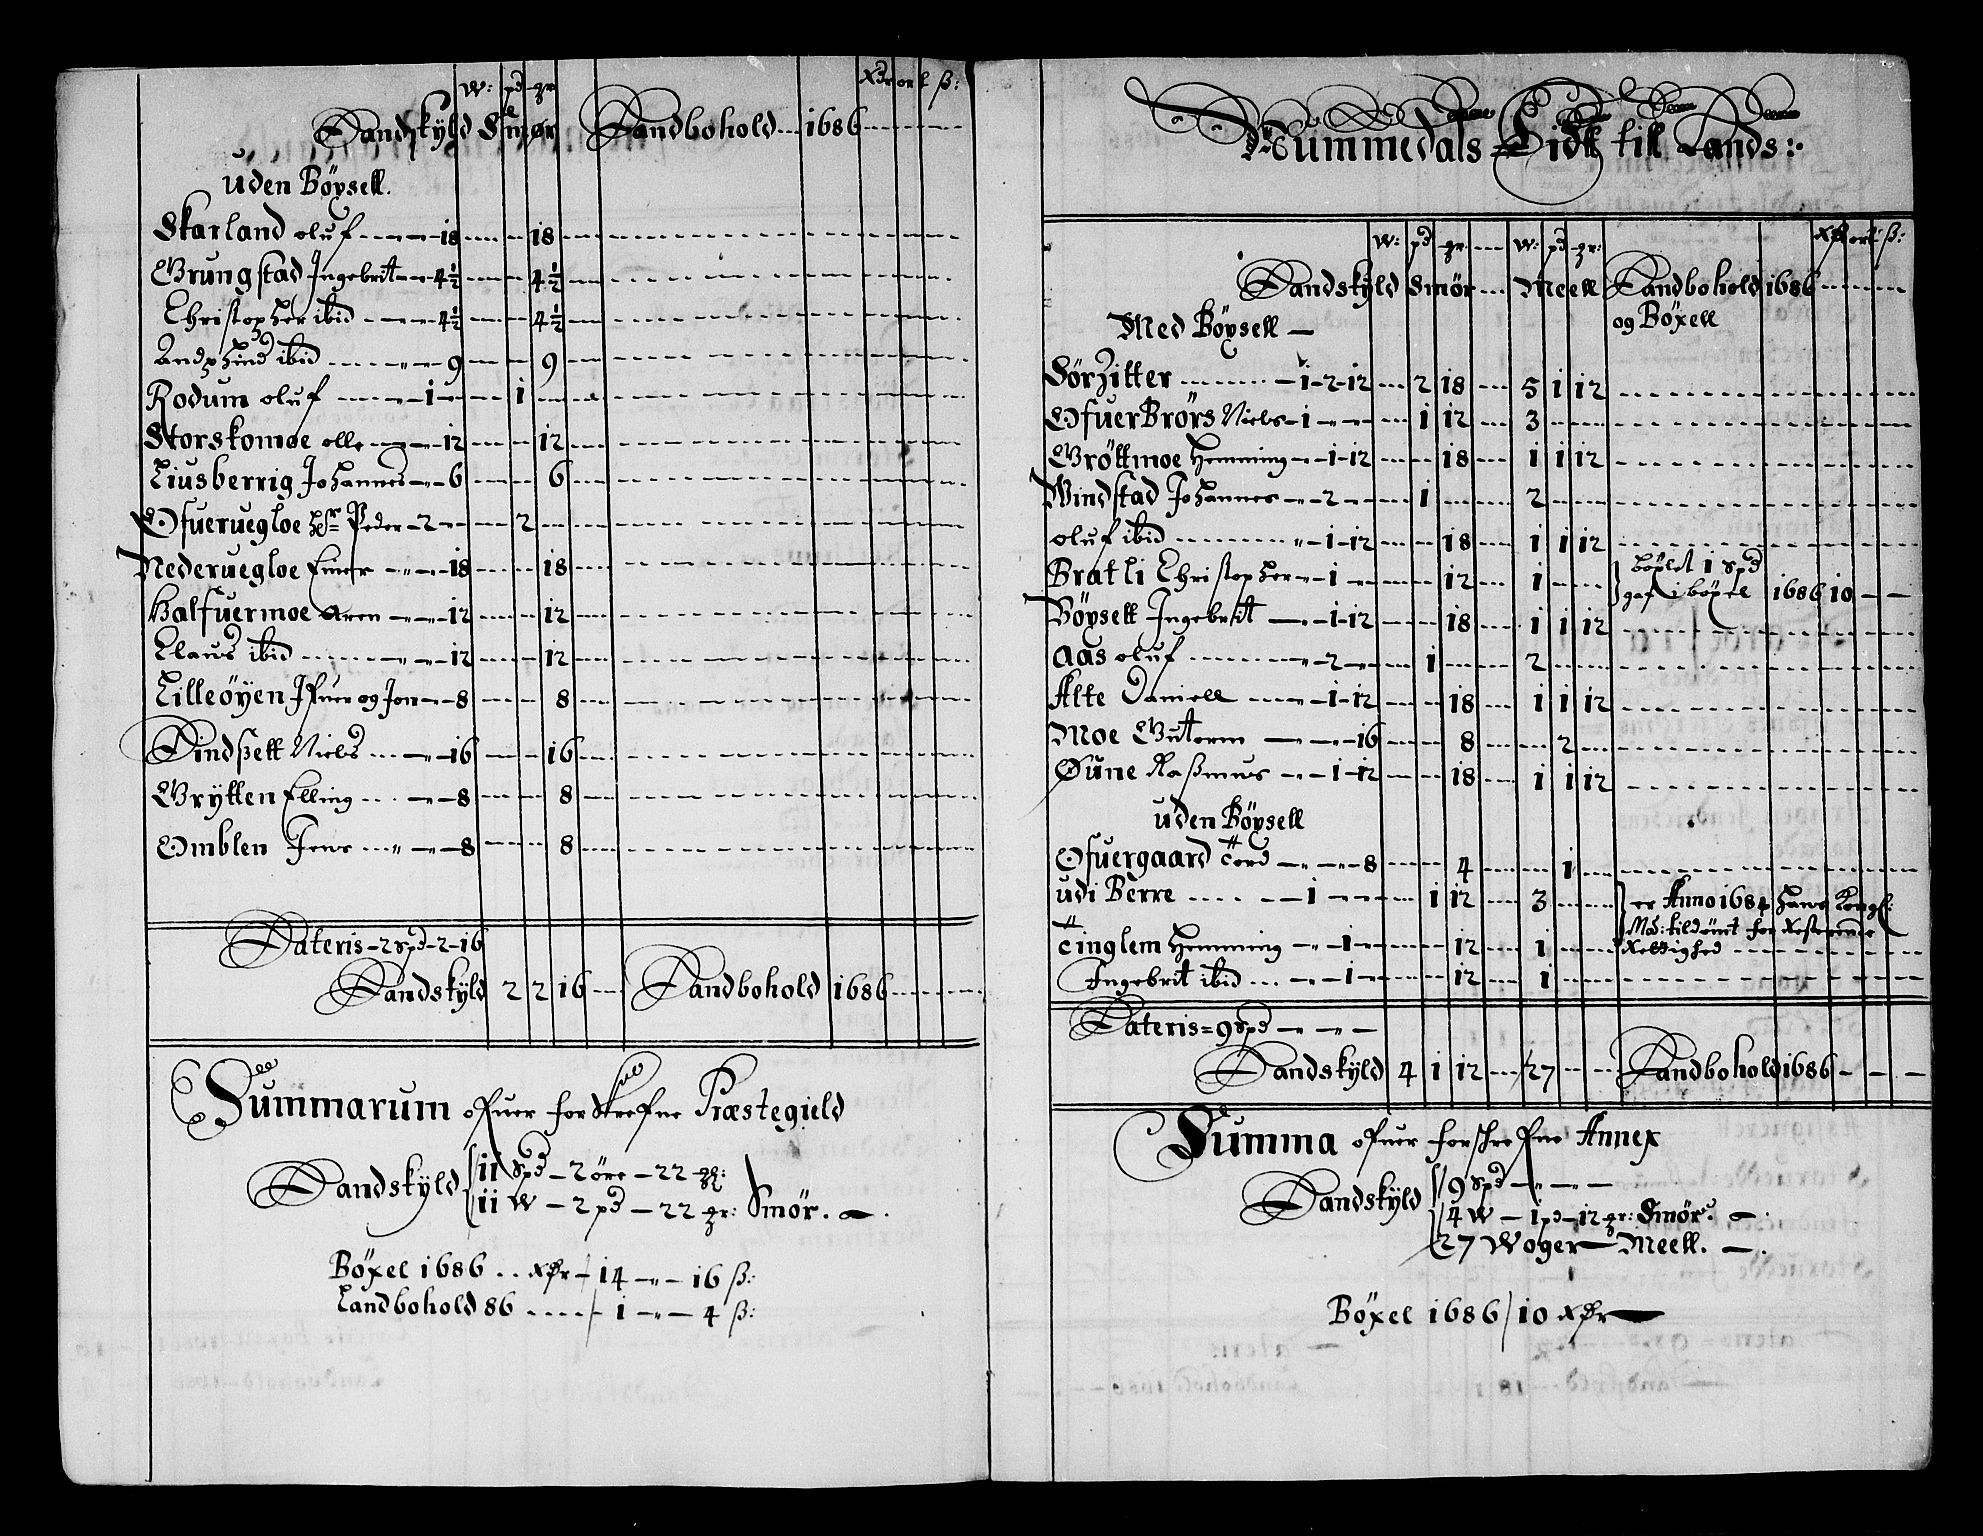 W: pd gr Xdr ort ß:
Landskyld Smør Landbohold 1686
uden Böysell.
Skarland oluf 18 18
Grungstad Ingebrit 4½ 4½
Christopher ibid 4½ 4½
ibid 9 9
Rodum oluf 1 1
Storskomoe olle 12 12
Liusberrig Johannes 6 6
Ofueruegloe hr Peder 2 2
Nederuegloe Einer 18 18
Halfuermoe Aren 12 12
Claus ibid 12 12
Lilleöyen Ifuer og Jon 8 8
Lindßett Niels 16 16
Grytten Elling 8 8
Omblen Jens 8 8
Lateris 2 Spd 2 16
Landskyld 2 2 16 Landbohold 1686
Summarum ofuer forskrefne Præstegield
Landskyld 11 Spd 2 öre 22 gr:
11 W 2 pd 22 gr: Smör.
Böxel 1686 xdr 14 16 ß:
Landbohold 86 1 4 ß:
Nummedals Eidtt till Lands:
W: pd gr W: pd gr: Xdr ort ß:
Landskyld Smör Meell Landbohold 1686
Med Böysell og Böxell
Sörzitter 1 2 12 2 18 5 1 12
OfuerBrörs Niels 1 1 12 3
Gröttmoe Hemming 1 12 18 1 1 12
Windstad Johannes 2 1 2
oluf ibid 1 12 18 1 1 12
Bratli Christopher 1 12 1 böxlet 1 spd
gaf i böxel 1686 10
Böysett Ingebrit 1 12 18 1 1 12
Aas oluf 2 1 2
Alte Daniell 1 12 18 1 1 12
Moe Guttorm 16 8 2
Öune Raßmus 1 12 18 1 1 12
uden Böysell
Ofuergaard Tord 8 4 1
udi Berre 1 1 12 3 er Anno 1684 Hans Kongl:
May: tildömt for Resterende
Rettighed
Tinglem Hemming 1 12 1
Ingebrit ibid 1 12 1
Lateris 9 Spd
Landskyld 4 1 12 27 Landbohold 1686
Summa ofuer forschrefne Annex
Landskyld 9 Spd
4 W 1 pd 12 gr: Smör.
27 Woger Meell.
Böxel 1686 10 xdr